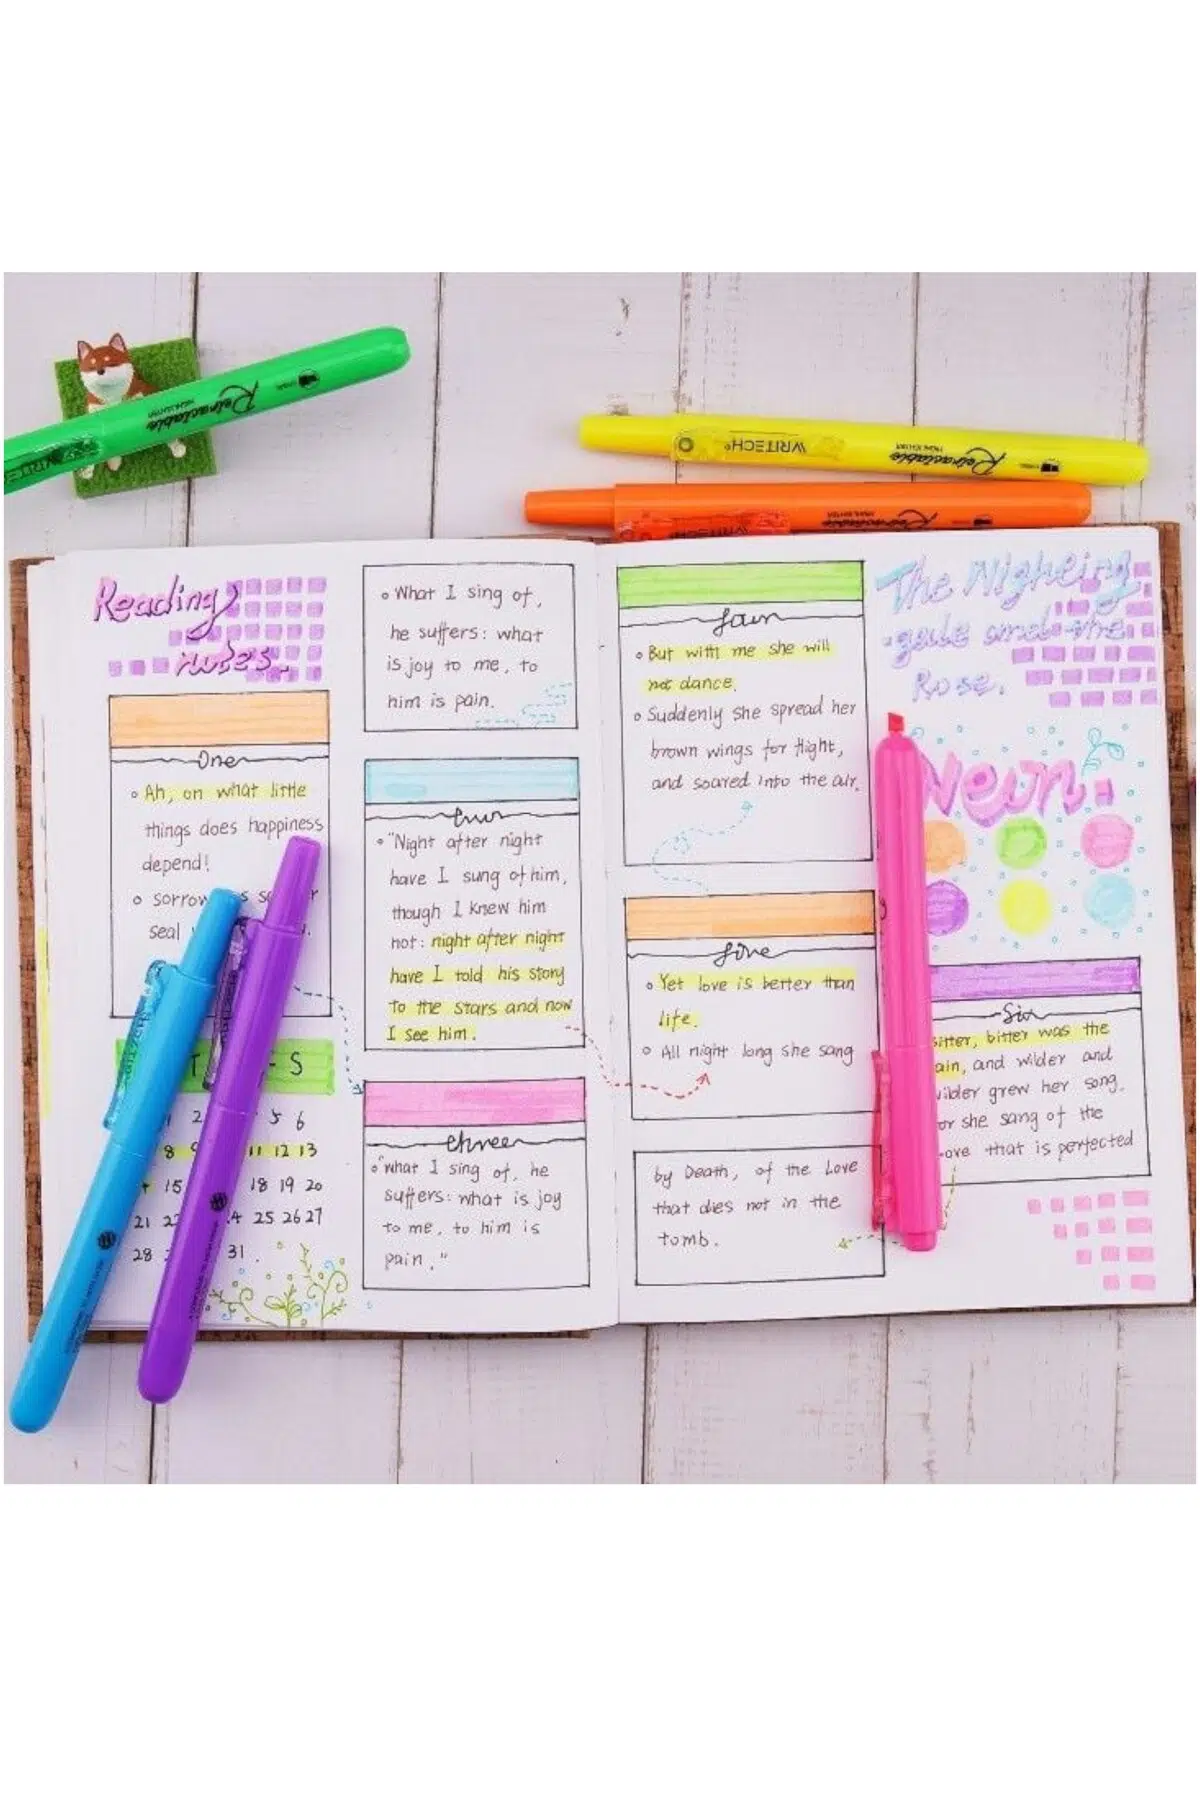 Reading
notes.
One
Ah, on what little
things does happiness
depend!
sorrow
seal
S
2 5 6
8 11 12 13
15 18 19 20
21 25 26 27
28 31
What I sing of,
he suffers: what
is joy to me, to
him is pain.
"Night after night
have I sung of him,
though I knew him
not: night after night
have I told his story
to the stars and now
I see him.
three
"what I sing of, he
suffers: what is joy
to me, to him is
pain."
four
But with me she will
not dance.
Suddenly she spread her
brown wings for flight,
and soared into the air.
five
Yet love is better than
life.
All night long she sang
by Death, of the Love
that dies not in the
tomb.
The Nigheing
-gale and the
Rose.
Neon.
Six
bitter was the
and wilder and
grew her song.
she sang of the
that is perfected
Retractable
HIGHLIGHTER
WRITECH
WRITECH®
Retractable
HIGHLIGHTER
WRITECH
Retractable
HIGHLIGHTER